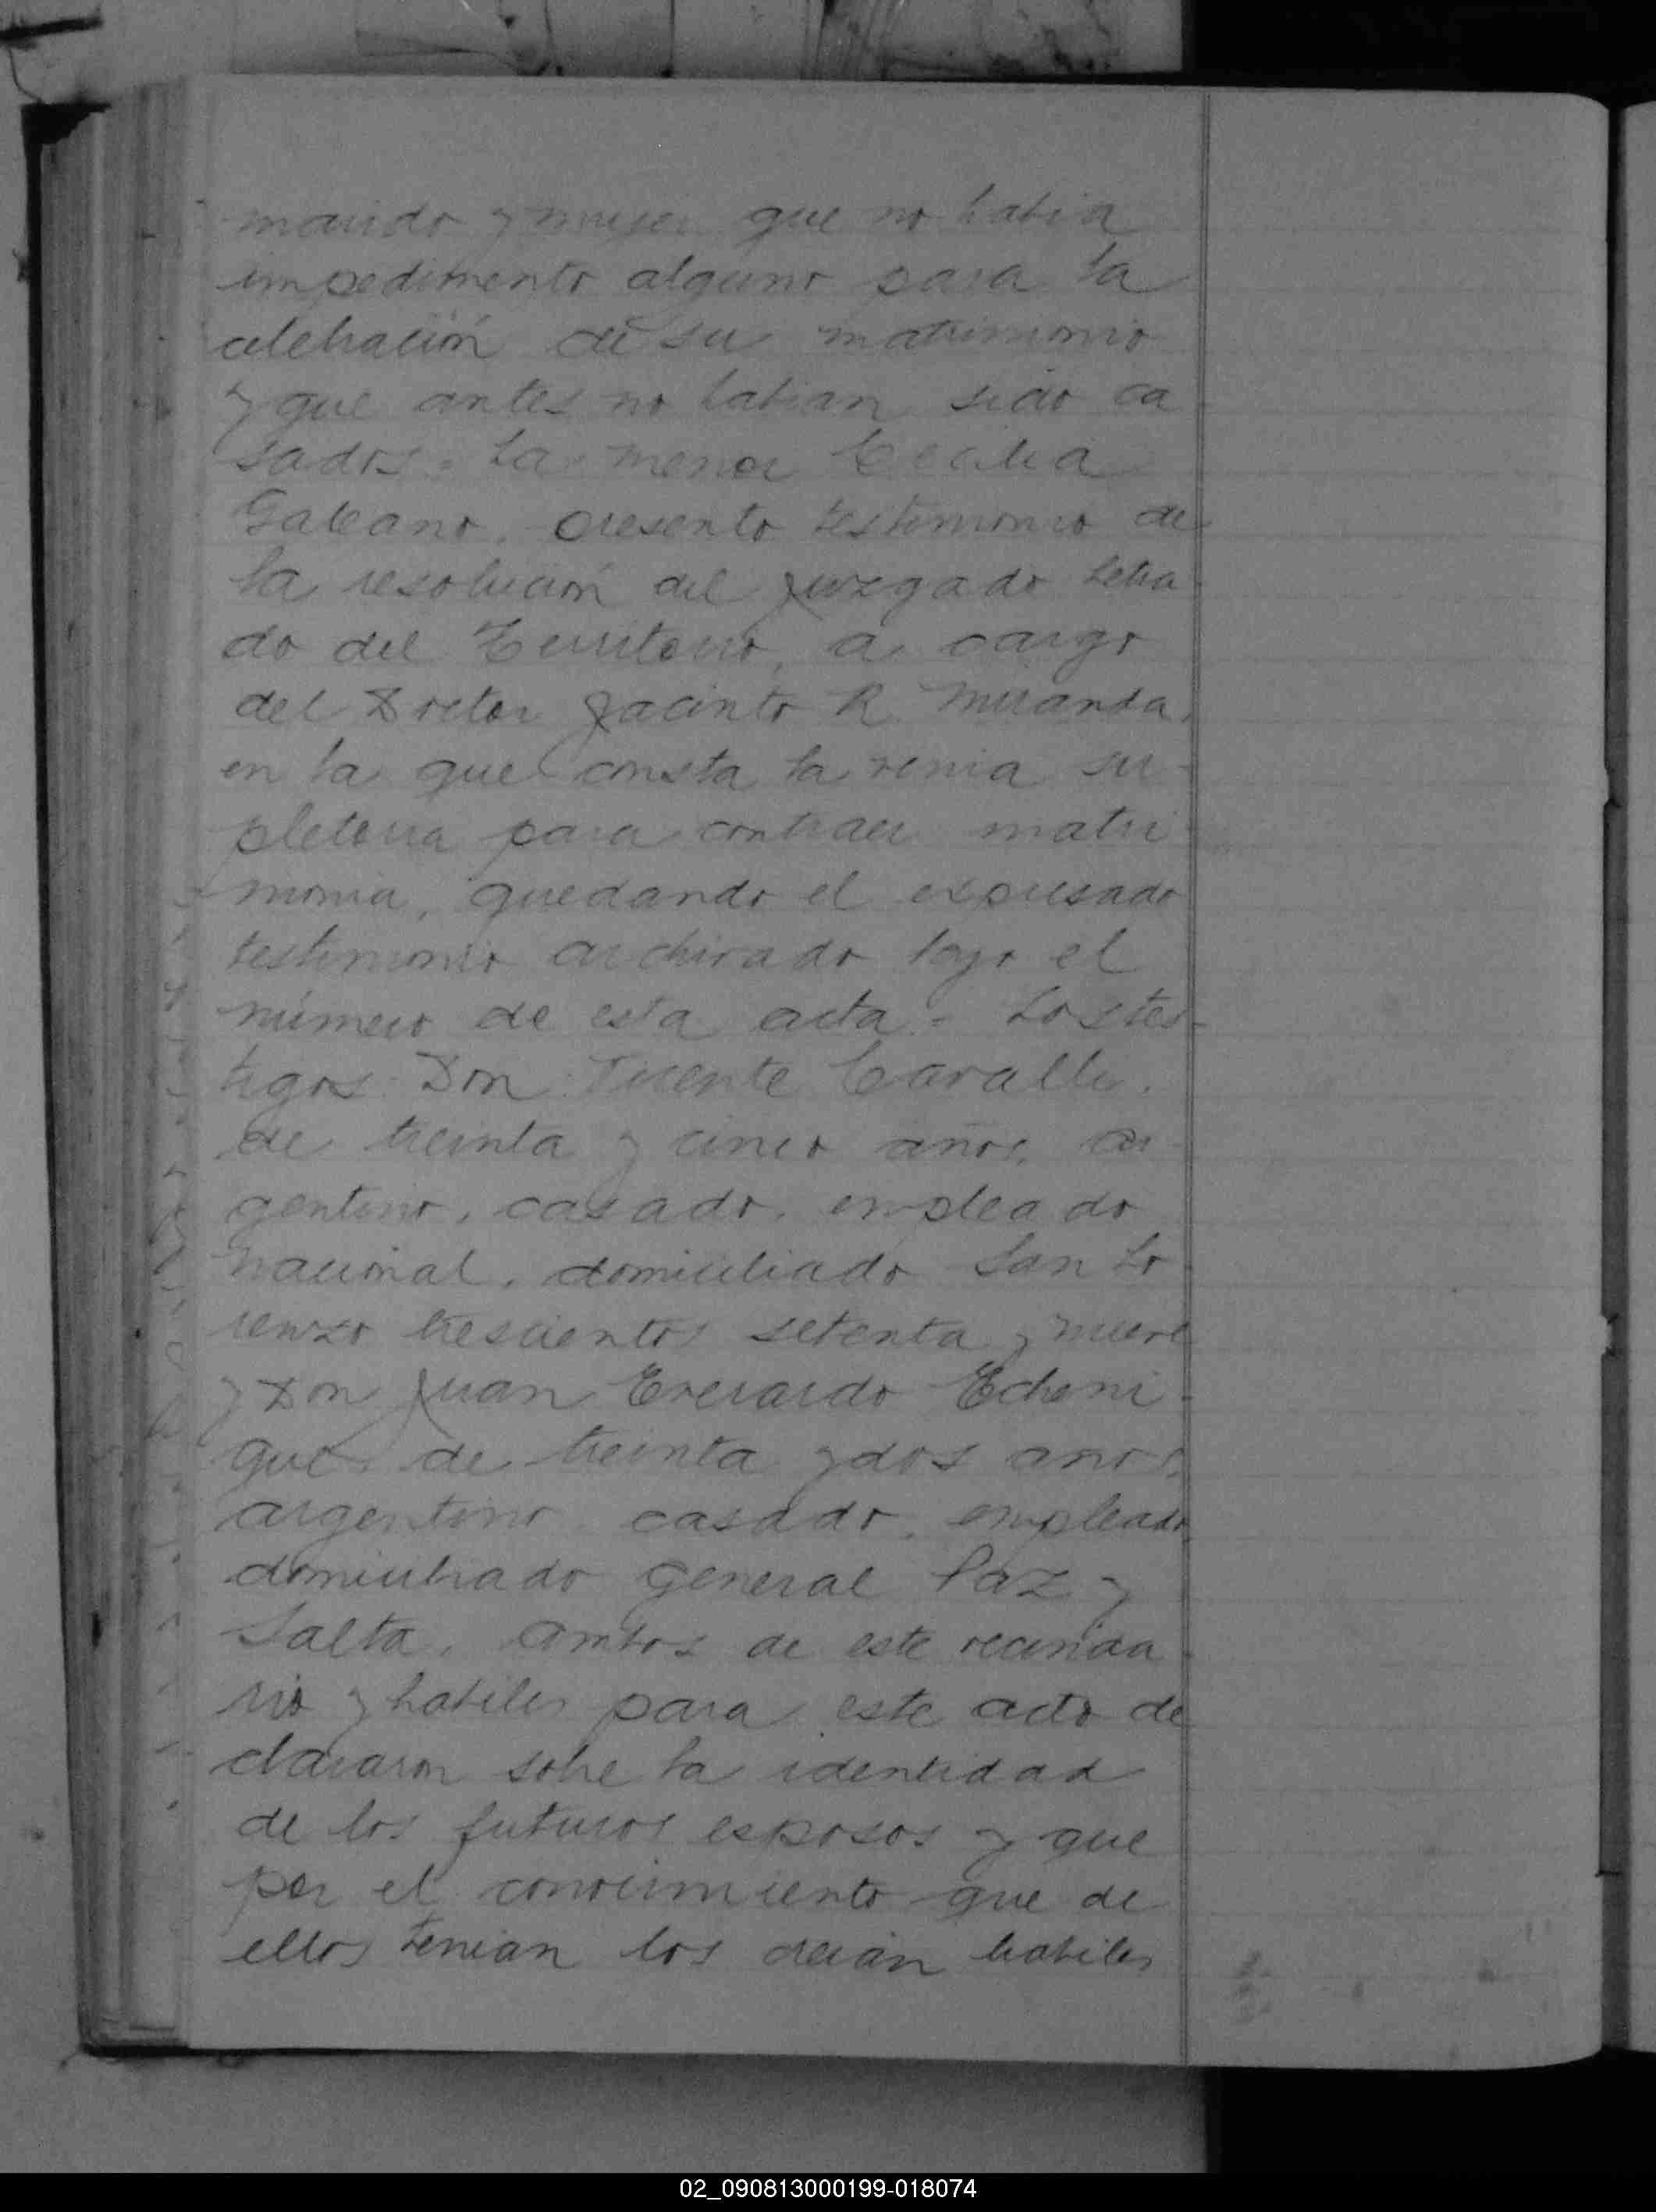 marido y mujer que no habia
impedimento alguno para la
celebración de su matrimonio
y que antes no habian sido ca
sados. La menor Cecilia
Galeano, presento testimonio de
la resolución del Juzgado Letra
do del Territorio, a cargo
del Doctor Jacinto R. Miranda,
en la que consta la venia su-
pletoria para contraer matri-
monio, quedando el expresado
testimonio archivado bajo el
número de esta acta. Los tes-
tigos: Don Vicente Caralli,
de treinta y cinco años, ar-
gentino, casado, empleado
nacional, domiciliado San Lo-
renzo trescientos setenta y nueve
y Don Juan Everardo Echeni-
que, de treinta y dos años,
argentino, casado, empleado,
domiciliado General Paz y
Salta, ambos de este vecinda-
rio y habiles para este acto de
clararon sobre la identidad
de los futuros esposos y que
por el conocimiento que de
ellos tenian los creían habiles
02_090813000199-018074